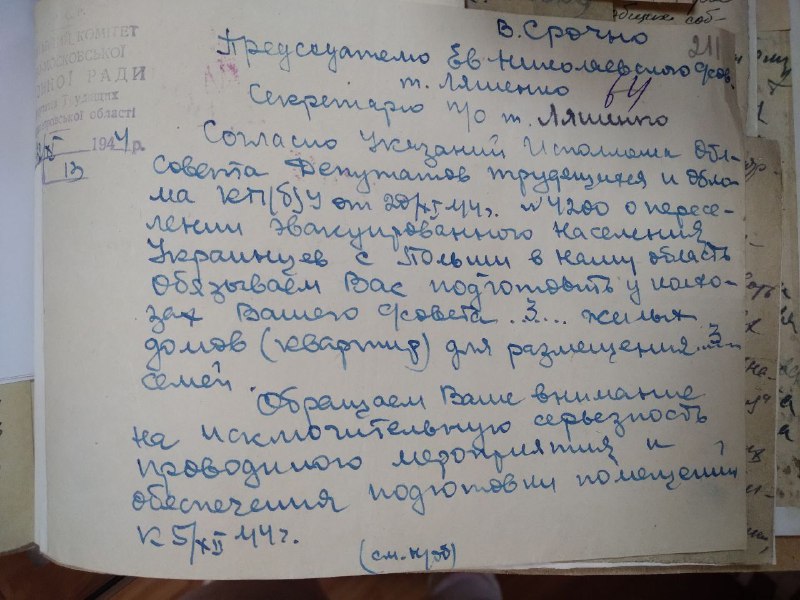 В. Срочно
211
Председателю Ев-Николаевского с/сов.
т. Ляшенко
Секретарю п/о т. Ляшенко
КОМИТЕТ
МОСКОВСКОЇ
РАДИ
області
1944 р.
13
Согласно Указаний Исполкома Обл-
совета Депутатов трудящихся и обко-
ма КП(б)У от 20/XI 44 г. №4200 о пересе-
лении эвакуированного населения
Украинцев с Польши в нашу область
обязываем Вас подготовить у колхо-
зах Вашего с/совета ..3... жилых
домов (квартир) для размещения ..3..
семей.
Обращаем Ваше внимание
на исключительную серьезность
проводимого мероприятия и
обеспечения подготовки помещений
к 5/XII 44 г.